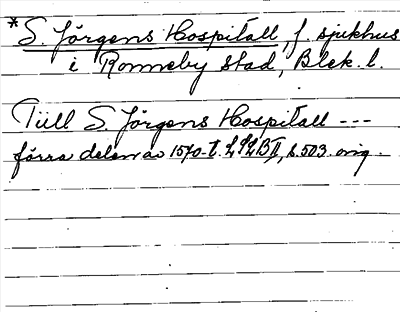 *S. Jörgens Hospitall, f. sjukhus
i Ronneby stad, Blek. l.
Till S. Jörgens Hospitall ---
förra delen av 1570-t. LSLB II, s. 503. orig.